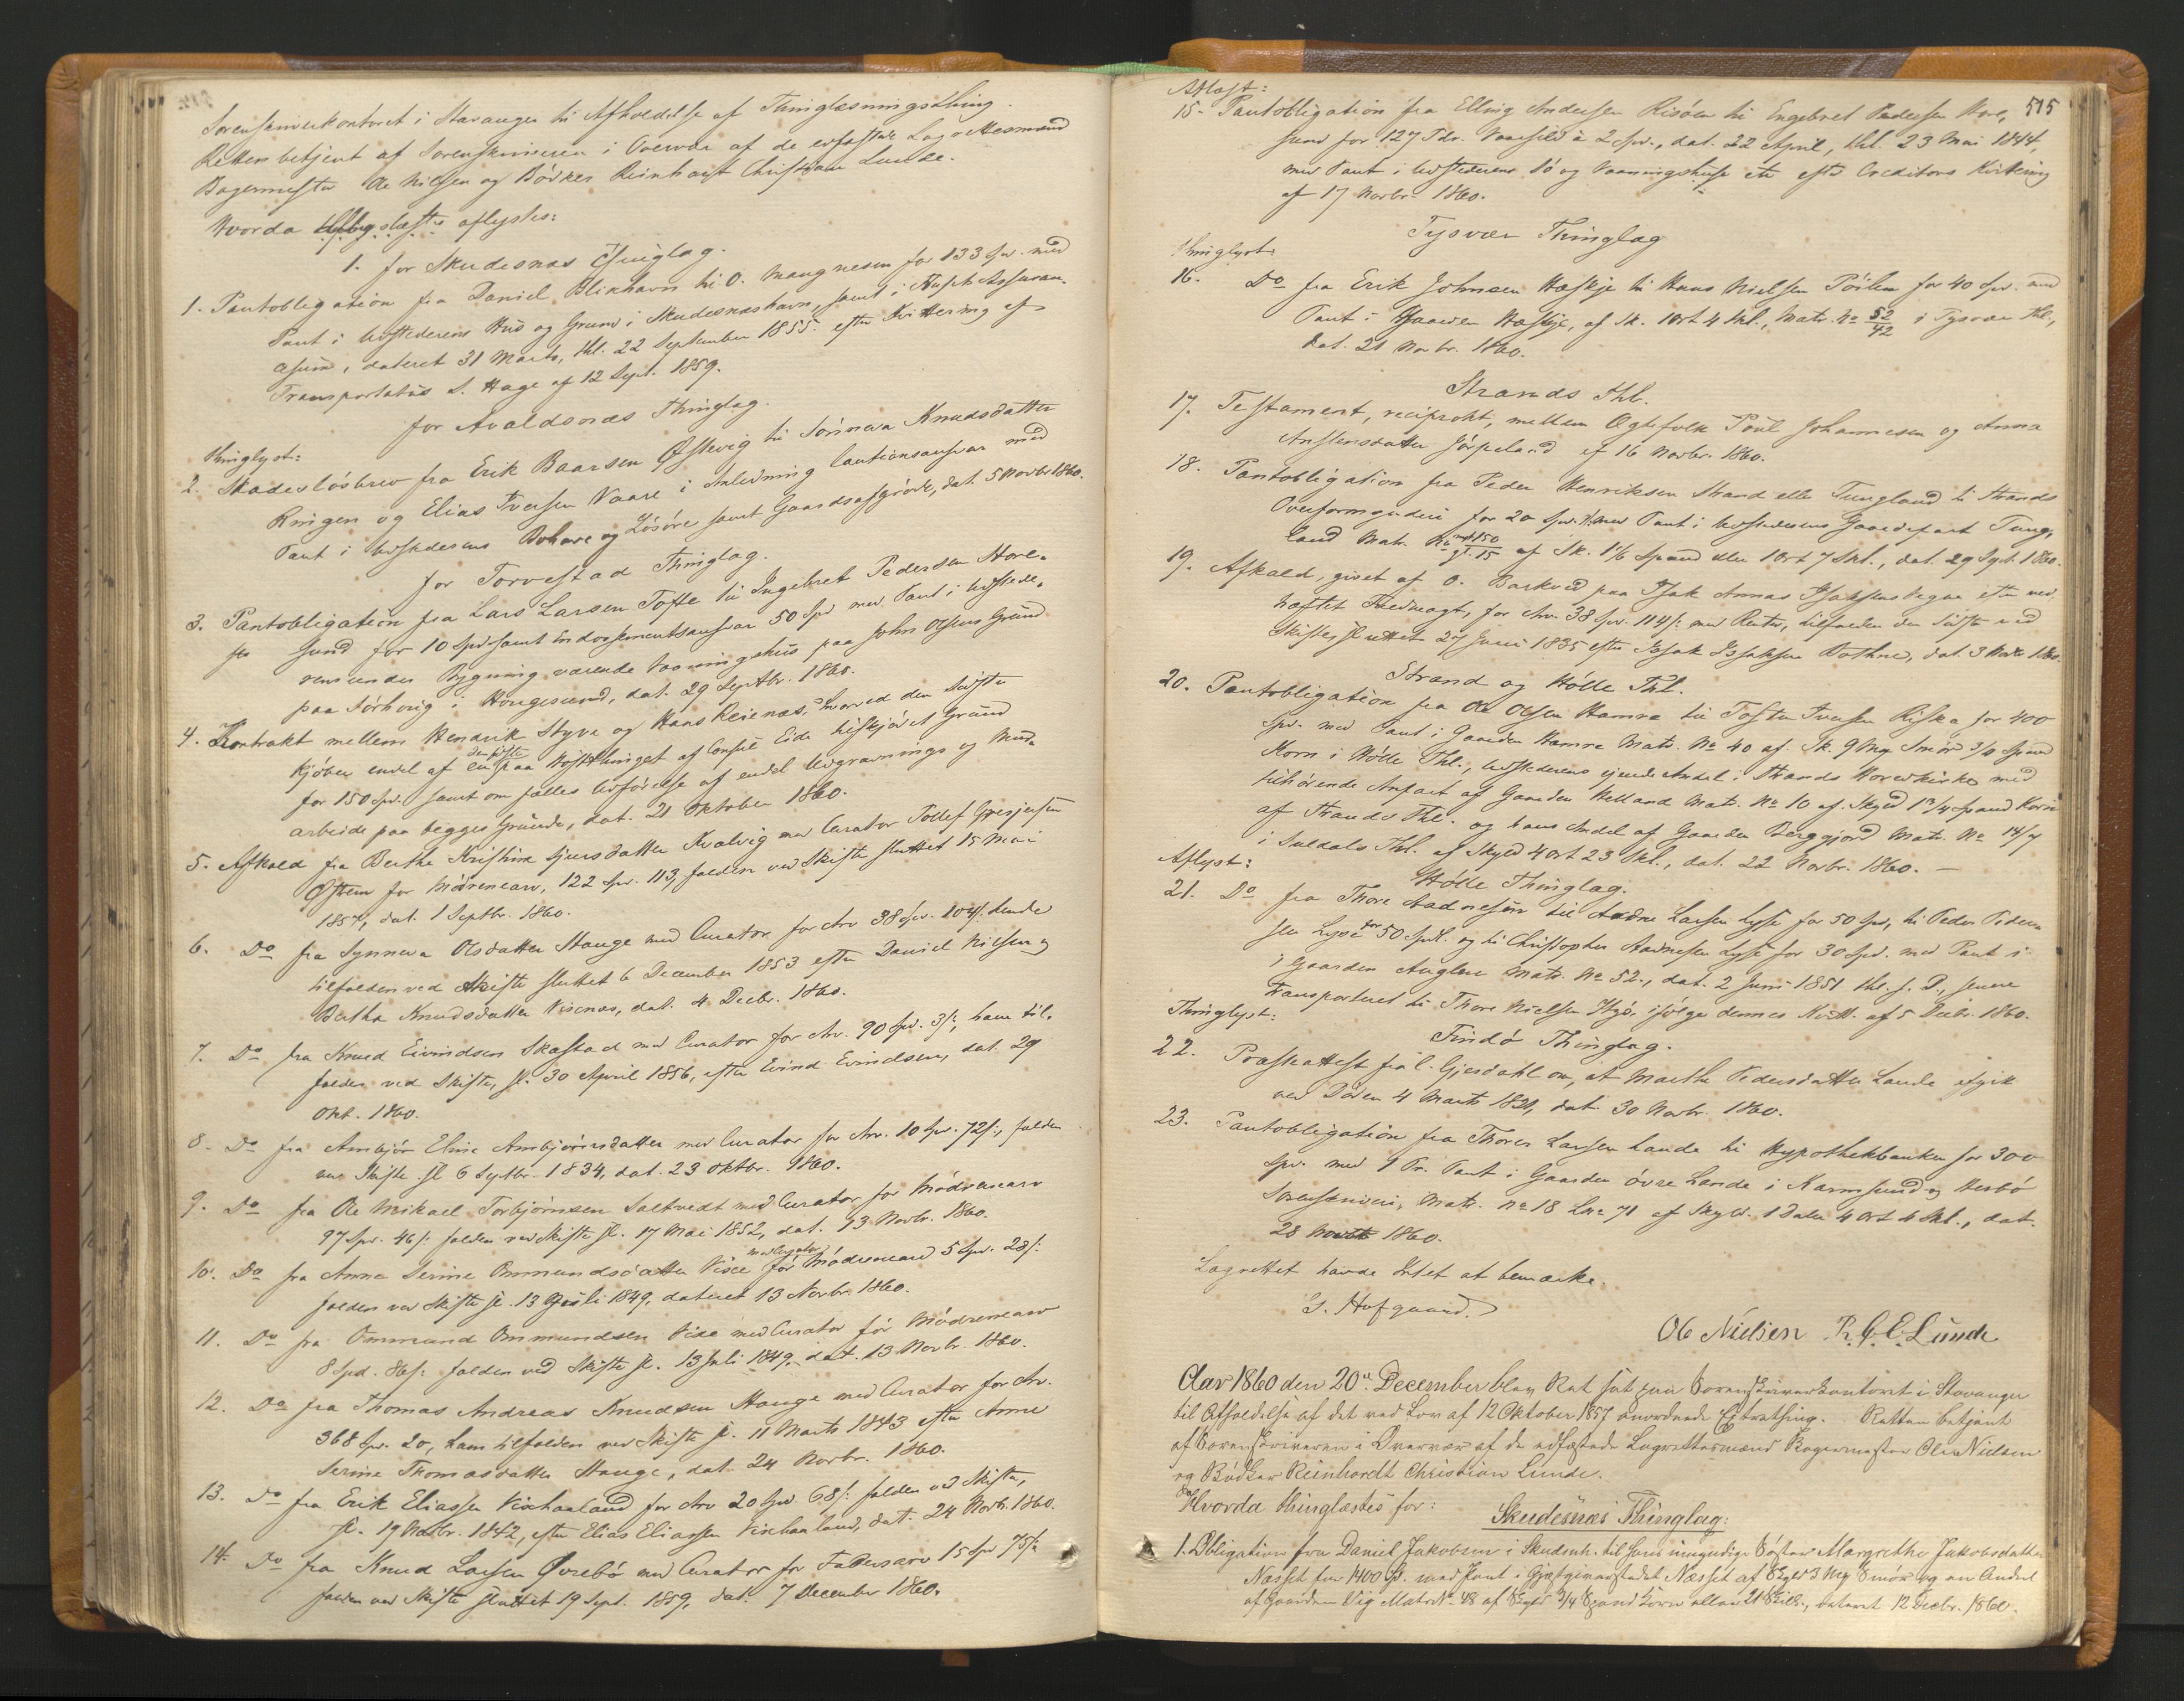 Sorenskriverkontoret i Stavanger til Afholdelse af Thinglæsningsthing.
Retten betjent af Sorenskriveren i Overvær af de edfæstede Lagrettesmænd
Bagermester Ole Nielsen og Bödker Reinhart Christian Lunde.
Hvorda aflystes:
1. for Skudesnæs Thinglag.
1. Pantobligation fra Daniel Blikhavn til O. Mangnesen for 133 Spd. med
Pant i Udstederens Hus og Grund i Skudesnæshavn, samt i
dateret 31 Marts, thl. 22 September 1855. efter Kvittering af
Transportatus S. Hage af 12 Sept. 1859.
for Avaldsnæs Thinglag.
thinglyst:
2. Skadeslösbrev fra Erik Baarsen Östevig til Sönneva Knudsdatter
Ringen og Elias Iversen Vaare i Anledning Cautionsansvar med
Pant i Udstederens Bohave og Lösöre samt Gaardsafgröde, dat. 5 Novbr 1860.
for Torvestad Thinglag.
3. Pantobligation fra Lars Larsen Tofte til Ingebret Pedersen Hore-
sund for 10 Spd samt Endossementsansvar 50 Spd med Pant i Udstede-
rens under Bygning værende Vaaningshus paa John Olsens Grund
paa Sörhoug i Hougesund, dat. 29 Septbr. 1860.
4. Kontrakt mellem Hendrik Styve og Hans Reienæs, hvorved den Sidste
kjöber endel af en den förste paa Höstthinget af Consul Eide tilskjödet Grund
for 150 Spd. samt om fælles Udförelse af endel Udgravnings og Mud-
arbeide paa begges Grunde, dat. 21 Oktober 1860.
5. Afkald fra Berthe Kristine Sjursdatter Kvalvig med Curator Tollef Gresjersen
Östrem for Mödrenearv, 122 Spd. 113, falden ved Skifte sluttet 15 Mai
1857, dat. 1 Septbr. 1860.
6. Do fra Synneva Olsdatter Stange med Curator for Arv 38 Spd. 104 s. hende
tilfalden ved Skifte sluttet 6 December 1853 efter Daniel Nielsen og
Bertha Knudsdatter Visnæs, dat. 4 Decbr. 1860.
7. Do fra Knud Eivindsen Skæstad med Curator for Arv. 90 Spd. 3 s., ham til-
falden ved Skifte, sl. 30 April 1856, efter Eivind Eivindsen, dat. 29
Okt. 1860.
8. Do fra Ambjör Eline Ambjörnsdatter med Curator for Arv. 10 Spd. 72 s., falden
ved Skifte sl 6 Septbr. 1834, dat. 23 Oktbr. 1860.
9. Do fra Ole Mikael Torbjörnsen Saltvedt med Curator for Mödrenearv
97 Spd. 46 s. falden ved Skifte sl. 17 Mai 1852, dat. 13 Novbr. 1860.
10. Do fra Anna Serine Ommundsdatter Visee med Curator for Mödrenearv 5 Spd. 28 s.
falden ved Skifte sl. 13 Juli 1849, dateret 13 Novbr. 1860.
11. Do fra Ommund Ommundsen Vise med Curator for Mödrenearv
8 Spd. 86 s. falden ved Skifte sl. 13 Juli 1849, dat. 13 Novbr. 1860.
12. Do fra Thomas Andreas Knudsen Hauge med Curator for Arv.
368 Spd. 20, ham tilfalden ved Skifte sl. 11 Marts 1843 efter Anne
Serine Thomasdatter Hauge, dat 24 Novbr. 1860.
13. Do fra Erik Eliassen Vikhaaland for Arv 20 Spd. 68 s. falden ved Skifte,
sl. 19 Novbr. 1842, efter Elias Eliassen Vikhaaland, dat. 24 Novbr 1860.
14. Do fra Knud Larsen Övrebö med Curator for Fædrearv 15 Spd 75 s.
falden ved Skifte sluttet 19 Sept. 1859, dat. 7 December 1860.
515
Aflyst:
15. Pantobligation fra Elling Andersen Risöen til Engebret Pedersen Hore-
sund for 127 Tdr. Vaarsild à 2 Spd., dat. 22 April, thl. 23 Mai 1844,
med Pant i Udstederens Sö og Vaaningshuse etc efter Creditors Kvittering
af 17 Novbr. 1860.
Tysvær Thinglag
thinglyst
16. Do fra Erik Johnsen Hæskje til Hans Nielsen Pöilen for 40 Spd. med
Pant i Gaarden Hæskje, af Sk. 1 Ort 4 Skl., Matr. No 52/42 i Tysvær Thl.,
dat. 21 Novbr. 1860.
Strands Thl.
17. Testament, reciprokt, mellem Ægtefolk Poul Johannesen og Anna
Anstensdatter Jörpeland af 16 Novbr. 1860.
18. Pantobligation fra Peder Henriksen Strand eller Tungland til Strands
Overformynderi for 20 Spd. med Pant i Udstederens Gaardepart Tung-
land Matr. No ny 150/gl. 15 af Sk. 1 1/6 Spand eller 1 Ort 7 Skl., dat. 29 Sept. 1860.
19. Afkald, givet af O. Barkved paa Isak Annas Isaksens Vegne efter ved-
hæftet Fuldmagt, for Arv. 38 Spd. 114 s. med Renter, tilfalden den Sidste ved
Skifte sluttet 27 Juni 1835 efter Isak Isaksen Bothne, dat. 3 1860.
Strand og Hölle Thl.
20. Pantobligation fra Ole Olsen Hamre til Tosten Iversen Riska for 400
Spd. med Pant i Gaarden Hamre Matr. No 40 af Sk. 9 Mrk Smör 3/4 Spand
Korn i Hölle Thl., Udstederens eiende Andel i Strands Hovedkirke med
tilhörende Anpart af Gaarden Helland Matr. No 10 af Skyld 1 1/4 Spand Korn
af Strands Thl. og hans Andel af Gaarden Berggjord Matr. No 14/7
i Suldals Thl. af Skyld 4 Ort 23 Skl., dat. 22 Novbr. 1860. —
Aflyst:
Hölle Thinglag.
21. Do fra Thore Aadnesen til Aadne Larsen Lyse for 50 Spd, til Peder Peder-
sen Lyse for 50 Spd. og til Christopher Aadnesen Lyse for 30 Spd. med Pant i
i Gaarden Auglen Matr. No 52., dat. 2 Juni 1851 thl. s. D., senere
transporteret til Thore Nielsen Hyö, ifölge dennes Kvitt. af 5 Decbr. 1860.
Thinglyst:
Findö Thinglag.
22. Præsteattest fra C. Gjesdahl om, at Marthe Pedersdatter Lande afgik
ved Döden 4 Marts 1821, dat. 30 Novbr. 1860.
23. Pantobligation fra Thores Larsen Lande til Hypothekbanken for 300
Spd. med 1 Pr. Pant i Gaarden övre Lande i Karmsund og Hesbö
Sorenskriveri, Matr. No 18 Lno 71 af Skyld. 1 Daler 4 Ort 4 Skl., dat.
28 1860.
Lagrettet havde Intet at bemærke.
S. Hofgaard.
Ole Nielsen R. C. E. Lunde
Aar 1860 den 20de December blev Ret sat paa Sorenskriverkontoret i Stavanger
til Afholdelse af det ved Lov af 12 Oktober 1857 anordnede Extrathing. Retten betjent
af Sorenskriveren i Overvær af de edfæstede Lagrettesmænd Bagermester Ole Nielsen
og Bödker Reinhardt Christian Lunde.
Hvorda thinglæstes for:
Skudesnæs Thinglag:
1. Obligation fra Daniel Jakobsen i Skudesnh. til hans umyndige Söster Margrethe Jakobsdatter
Næsset for 1400 Sp. med Pant i Gjæstgiverstedet Næsset af Skyld 3 Mrk Smör og en Andel
af Gaarden Vig Matr No. 48 af Skyld 3/4 Spand Korn eller 21 Skill., dateret 12 Decbr. 1860.